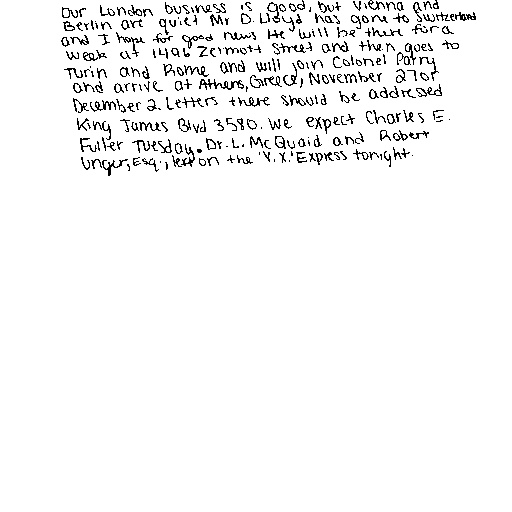 Our London business is good, but Vienna and
Berlin are quiet Mr D. Lloyd has gone to Switzerland
and I hope for good news He will be there for a
week at 1496 Zermott Street and then goes to
Turin and Rome and will join Colonel Parry
and arrive at Athens, Greece, November 27 or
December 2. Letters there should be addressed
King James Blvd 3580. We expect Charles E.
Fuller Tuesday. Dr. L. McQuaid and Robert
Unger, Esq., left on the 'Y.X.' Express tonight.